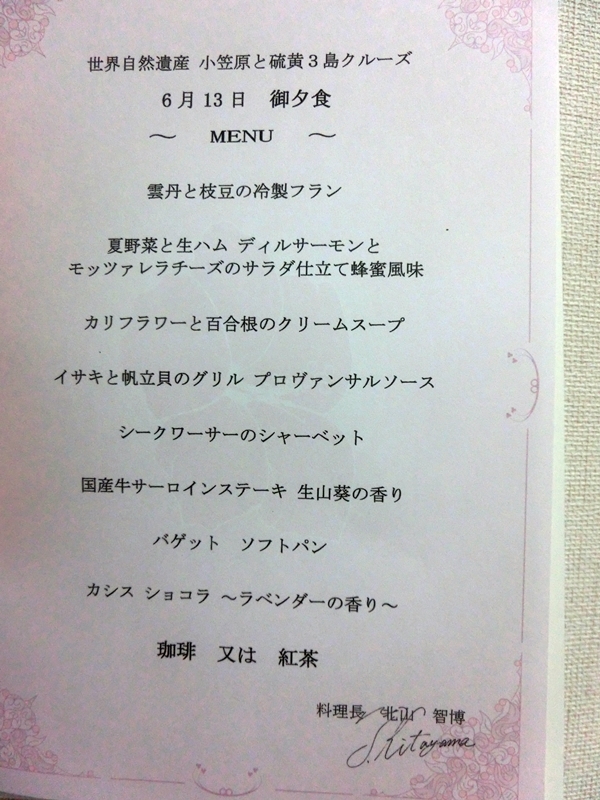 世界自然遺産 小笠原と硫黄３島クルーズ
６月13日 御夕食
～ MENU ～
雲丹と枝豆の冷製フラン
夏野菜と生ハム ディルサーモンと
モッツァレラチーズのサラダ仕立て蜂蜜風味
カリフラワーと百合根のクリームスープ
イサキと帆立貝のグリル プロヴァンサルソース
シークワーサーのシャーベット
国産牛サーロインステーキ 生山葵の香り
バゲット ソフトパン
カシス ショコラ ～ラベンダーの香り～
珈琲 又は 紅茶
料理長 北山 智博
S.Kitayama